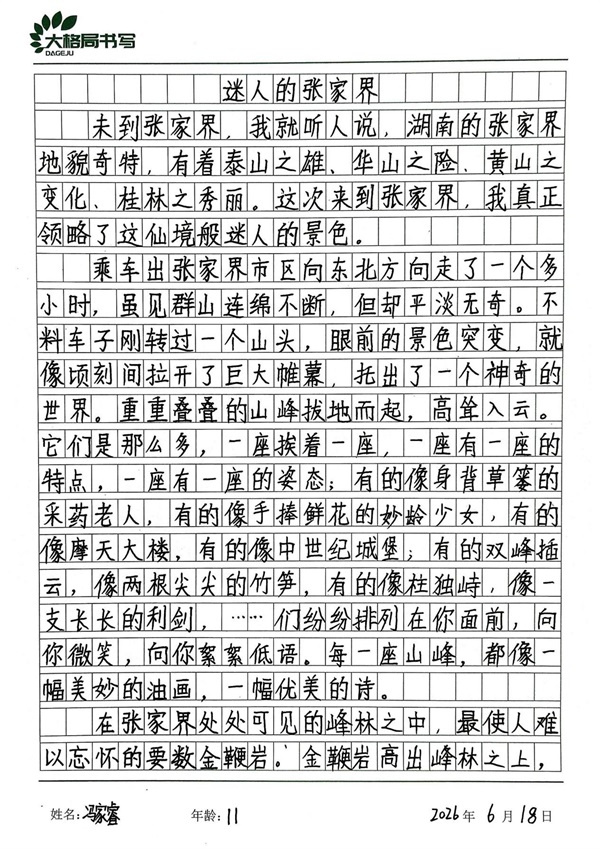 大格局书写
DAGEJU
迷人的张家界
未到张家界，我就听人说，湖南的张家界
地貌奇特，有着泰山之雄、华山之险、黄山之
变化、桂林之秀丽。这次来到张家界，我真正
领略了这仙境般迷人的景色。
乘车出张家界市区向东北方向走了一个多
小时，虽见群山连绵不断，但却平淡无奇。不
料车子刚转过一个山头，眼前的景色突变，就
像顷刻间拉开了巨大帷幕，托出了一个神奇的
世界。重重叠叠的山峰拔地而起，高耸入云。
它们是那么多，一座挨着一座，一座有一座的
特点，一座有一座的姿态；有的像身背草篓的
采药老人，有的像手捧鲜花的妙龄少女，有的
像摩天大楼，有的像中世纪城堡；有的双峰插
云，像两根尖尖的竹笋，有的像柱独峙，像一
支长长的利剑，……们纷纷排列在你面前，向
你微笑，向你絮絮低语。每一座山峰，都像一
幅美妙的油画，一幅优美的诗。
在张家界处处可见的峰林之中，最使人难
以忘怀的要数金鞭岩。金鞭岩高出峰林之上，
姓名：冯家睿 年龄：11 2026年6月18日